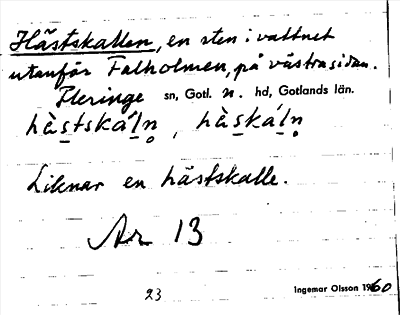 Hästskallen, en sten i vattnet
utanför Falholmen, på västra sidan.
Fleringe sn, Gotl. n. hd, Gotlands län.
hä̀s̠tská́l̠n̥ , hä̀s̠ká́l̠n̥
Liknar en hästskalle.
Ar 13
23 Ingemar Olsson 1960